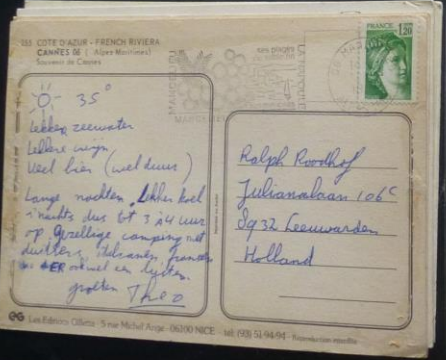 255 COTE D'AZUR - FRENCH RIVIERA
CANNES 06 (Alpes Maritimes)
Souvenir de Cannes
35°
Lekker zeewater
Lekkere wijn
Veel bier (wel duur)
Lange nachten. Lekker koel
's nachts dus tot 3 à 4 uur
op. Gezellige camping met
duitsers, italianen, fransen
ER ook wel een
groeten Theo
MANDELIEU
ses plages
LA NAPOULE
FRANCE
1,20
Ralph Roodhof
Julianalaan 106c
8932 Leeuwarden
Holland
Les Editions Gilletta - 5 rue Michel Ange - 06200 NICE tel. (93) 51-94-94 - Reproduction interdite